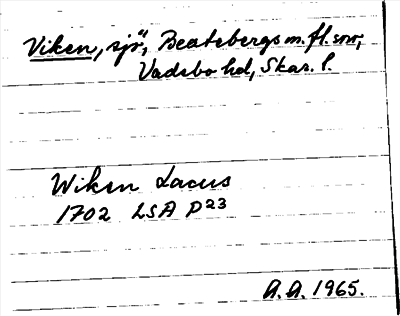 Viken, sjö, Beatebergs m. fl. snr,
Vadsbo hd, Skar. l.
Wiken Lacus
1702 LSA P23
A.A. 1965.